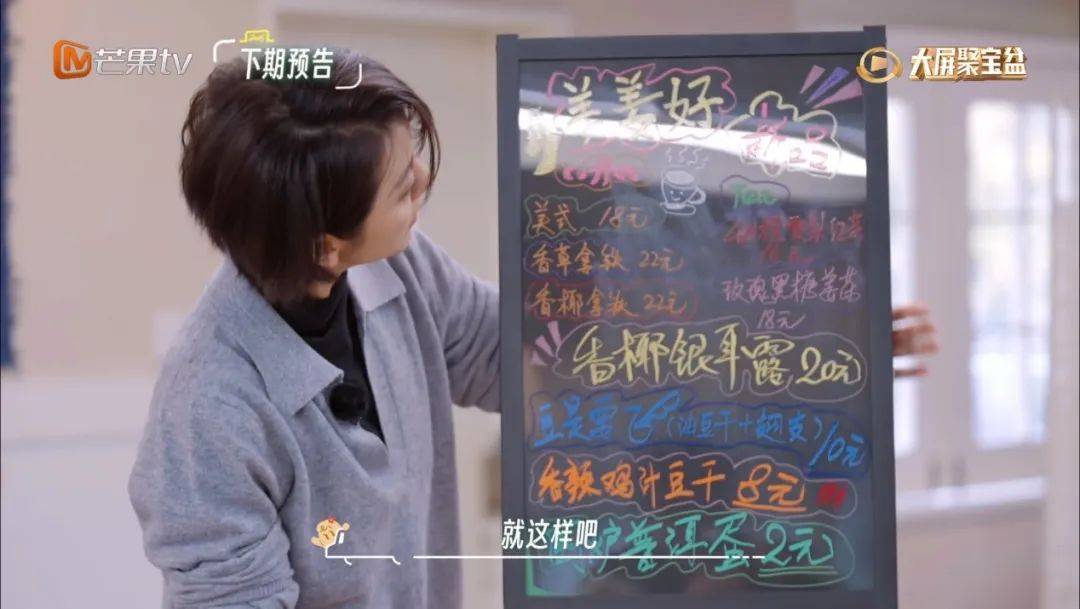 芒果TV
下期预告
大屏聚宝盆
美美好
新品
Tea
美式 18元
香草拿铁 22元
香椰拿铁 22元
玫瑰黑糖
18元
香椰银耳露 20元
豆是要飞(油豆干+翅支)10元
香辣鸡汁豆干 8元
普洱蛋 2元
就这样吧